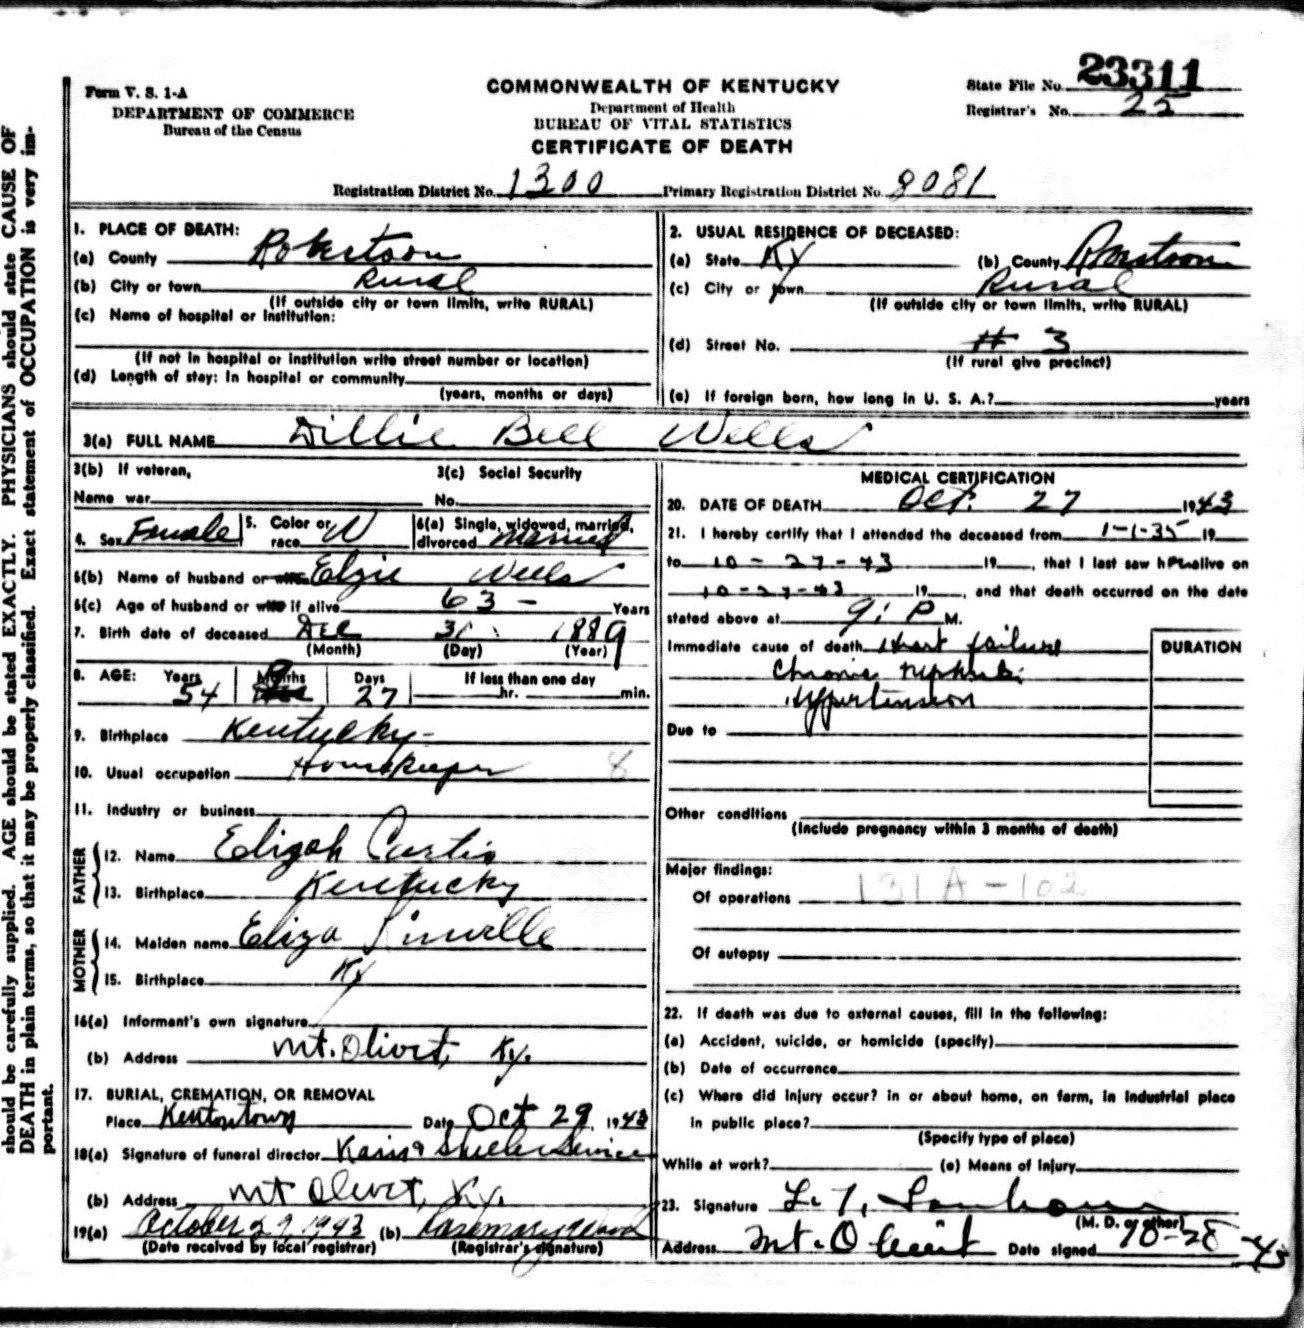 Form V. S. 1-A
DEPARTMENT OF COMMERCE
Bureau of the Census
COMMONWEALTH OF KENTUCKY
Department of Health
BUREAU OF VITAL STATISTICS
CERTIFICATE OF DEATH
State File No. 23311
Registrar's No. 25
Registration District No. 1300 Primary Registration District No. 8081
1. PLACE OF DEATH:
(a) County Robertson
(b) City or town Rural
(If outside city or town limits, write RURAL)
(c) Name of hospital or institution:
(If not in hospital or institution write street number or location)
(d) Length of stay: In hospital or community
(years, months or days)
2. USUAL RESIDENCE OF DECEASED:
(a) State Ky (b) County Robertson
(c) City or town Rural
(If outside city or town limits, write RURAL)
(d) Street No. # 3
(If rural give precinct)
(e) If foreign born, how long in U. S. A.? years
3(a) FULL NAME Dillie Bell Wells
3(b) If veteran,
Name war
3(c) Social Security
No.
4. Sex Female 5. Color or race W 6(a) Single, widowed, married, divorced Married
6(b) Name of husband or wife Elzie Wells
6(c) Age of husband or wife if alive 63 - Years
7. Birth date of deceased Dec 31 1889
(Month) (Day) (Year)
8. AGE: Years Months Days If less than one day
54 27 hr. min.
9. Birthplace Kentucky-
10. Usual occupation Housekeeper 8
11. Industry or business
FATHER
12. Name Elizah Curtis
13. Birthplace Kentucky
MOTHER
14. Maiden name Eliza Linville
15. Birthplace Ky
16(a) Informant's own signature
(b) Address Mt. Olivet, Ky.
17. BURIAL, CREMATION, OR REMOVAL
Place Kentontown Date Oct 29, 1943
18(a) Signature of funeral director
(b) Address Mt Olivet, Ky.
19(a) October 29, 1943 (b) Rosemary
(Date received by local registrar) (Registrar's signature)
MEDICAL CERTIFICATION
20. DATE OF DEATH Oct. 27 1943
21. I hereby certify that I attended the deceased from 1-1-35 19
to 10-27-43 19, that I last saw her alive on
10-27-43 19, and that death occurred on the date
stated above at 9: P M.
Immediate cause of death Heart failure
Chronic Nephritis
Hypertension
DURATION
Due to
Other conditions
(Include pregnancy within 3 months of death)
Major findings:
Of operations 131A-102
Of autopsy
22. If death was due to external causes, fill in the following:
(a) Accident, suicide, or homicide (specify)
(b) Date of occurrence
(c) Where did injury occur? in or about home, on farm, in industrial place
in public place?
(Specify type of place)
While at work? (e) Means of injury
23. Signature L. T. Lanham
(M. D. or other)
Address Mt. Olivet Date signed 10-28-43
should be carefully supplied. AGE should be stated EXACTLY. PHYSICIANS should state CAUSE OF
DEATH in plain terms, so that it may be properly classified. Exact statement of OCCUPATION is very im-
portant.